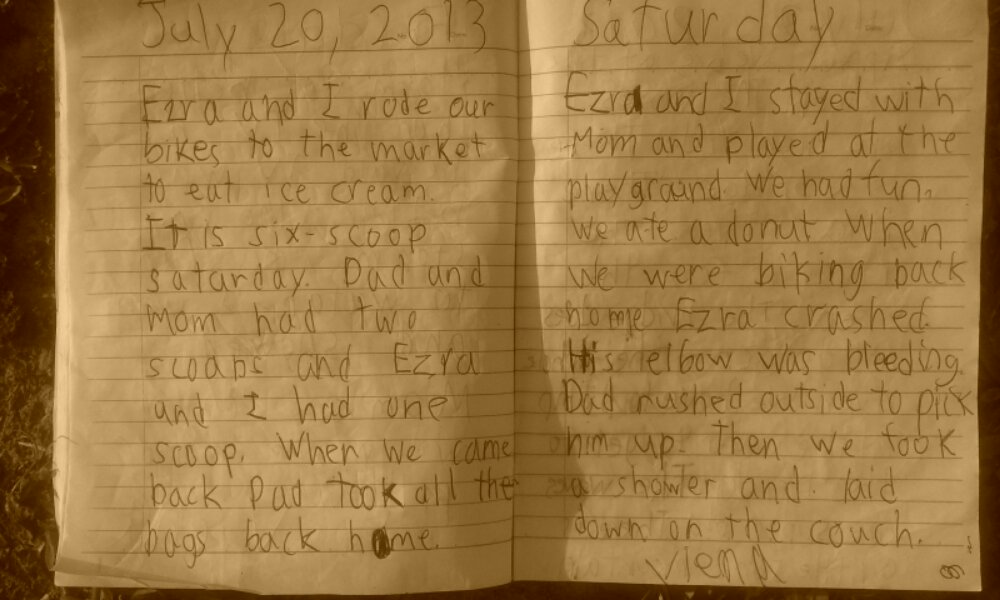 July 20, 2013
Ezra and I rode our
bikes to the market
to eat ice cream.
It is six-scoop
saturday. Dad and
Mom had two
scoops and Ezra
and I had one
scoop. When we came
back Dad took all the
bags back home.
Saturday
Ezra and I stayed with
Mom and played at the
playground. We had fun.
We ate a donut When
we were biking back
home Ezra crashed.
His elbow was bleeding.
Dad rushed outside to pick
him up. Then we took
a shower and laid
down on the couch.
Viena